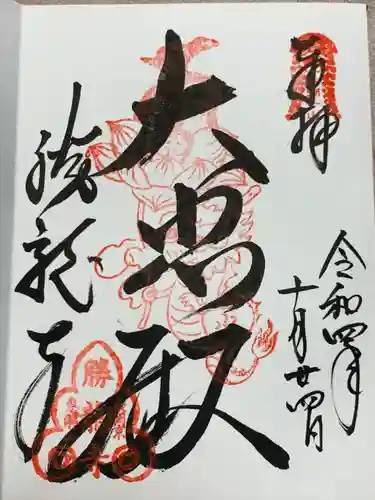 奉拝
令和四年
十月廿四日
大悲殿
勝龍寺
勝